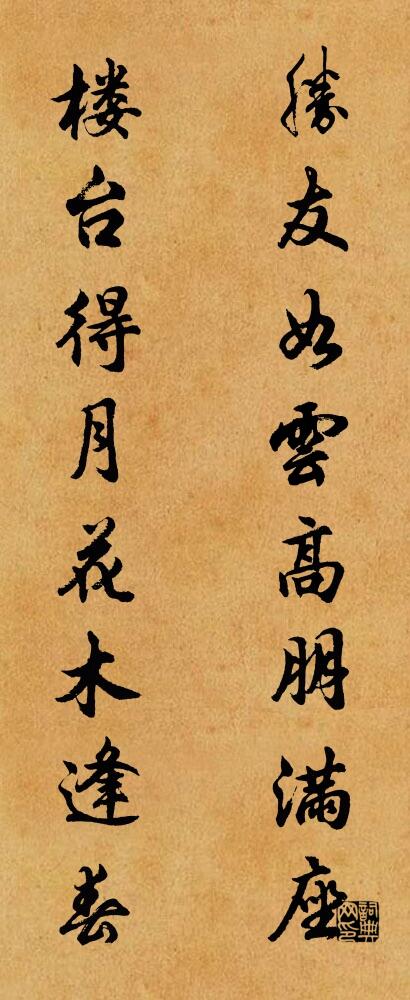 勝友如雲高朋满座
楼台得月花木逢春
詞典网印